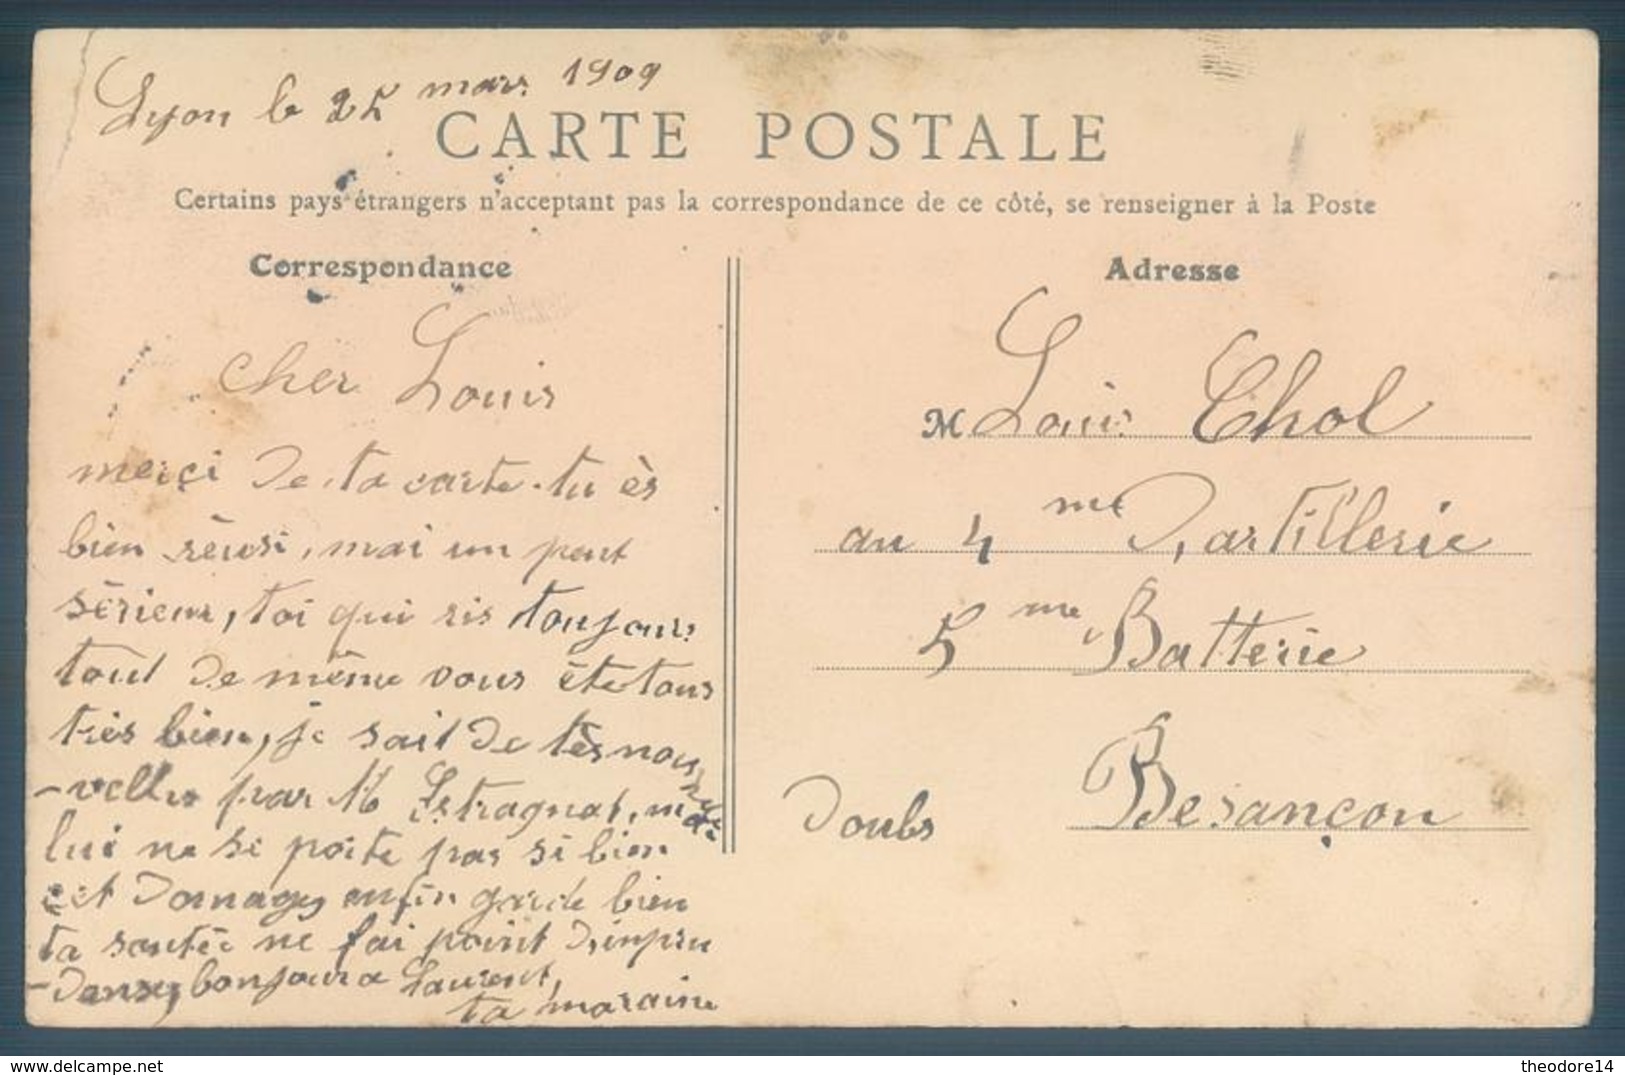 Lyon le 25 mars 1909
CARTE POSTALE
Certains pays étrangers n'acceptant pas la correspondance de ce côté, se renseigner à la Poste
Correspondance
cher Louis
merçi de ta carte tu ès
bien réusi, mai un peut
sérieux, toi qui ris toujours
tout de même vous ête tous
très bien, je sait de tès nou
-velles par M Estragnat, mai
lui ne si porte pas si bien
cèt domages enfin garde bien
ta santée ne fai point d,inpru
-danse, bonjour a Laurent,
ta maraine
Adresse
M Louis Chol
au 4me D,artillerie
5me Batterie
Besançon
Doubs
theodore14